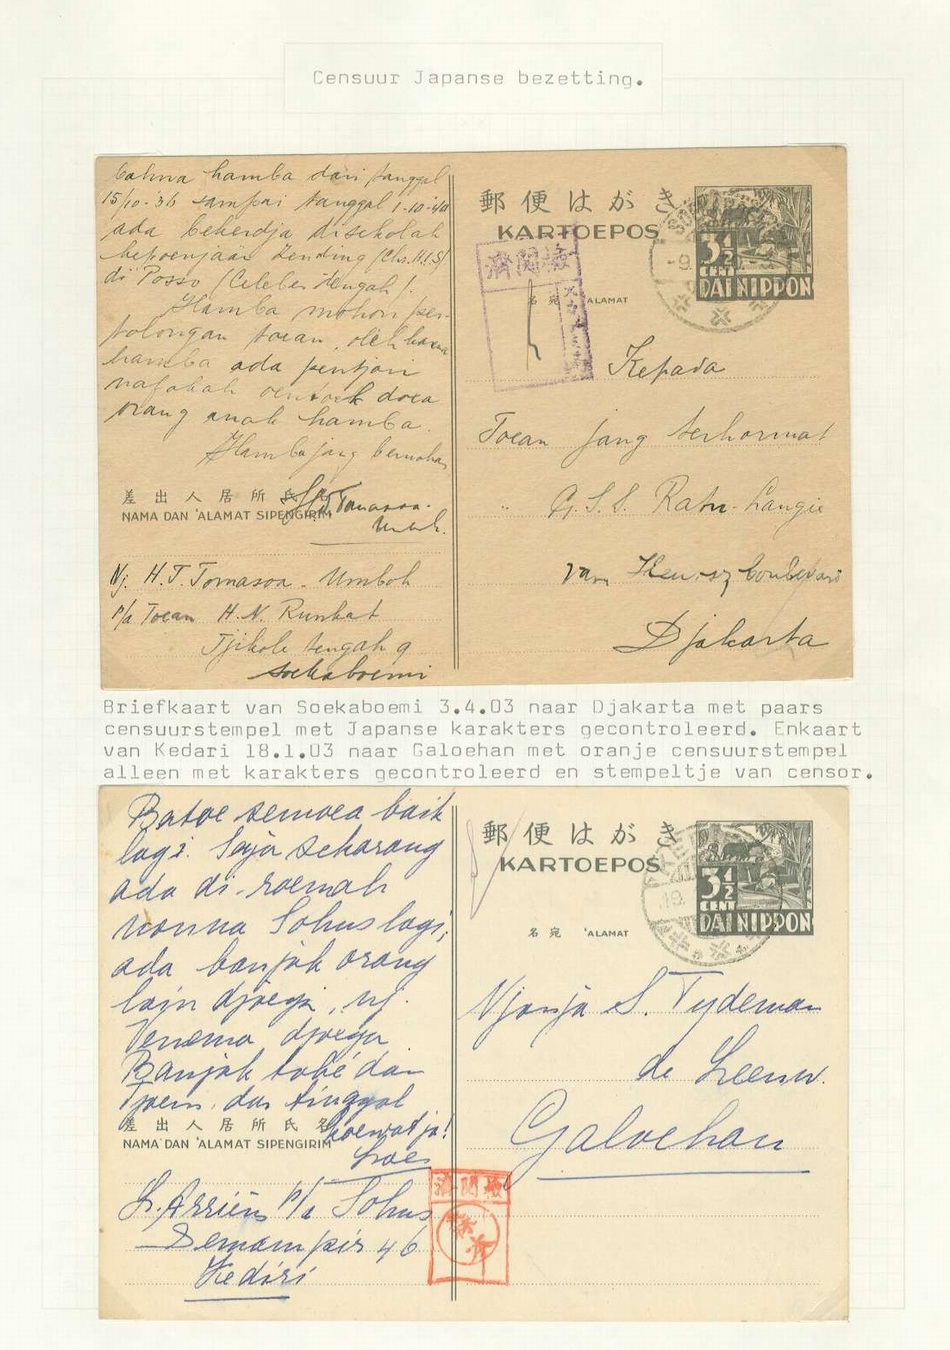 Censuur Japanse bezetting.
bahwa hamba dari tanggal
15/10-'36 sampai tanggal 1-10-'41
ada bekerdja disekolah
kepoenjaän Zending (Chr. H.I.S)
di Posso (Celebes tengah).
Hamba mohon per-
tolongan toean, oleh karna
hamba ada pentjari
nafakah oentoek doea
orang anak hamba.
Hamba jang bermohon
Tomasoa-
Umboh.
差出人居所氏名
NAMA DAN ʼALAMAT SIPENGIRIM
Nj. H.T. Tomasoa-Umboh
p/a Toean H.N. Runkat
Tjikole tengah 9
Soekaboemi
郵便はがき
KARTOEPOS
3½
CENT
DAI NIPPON
濟閲檢
名宛 ʼALAMAT
Kepada
Toean jang terhormat
" G.S.S. Ratu-Langie
van Heutsz boulevard
Djakarta
Briefkaart van Soekaboemi 3.4.03 naar Djakarta met paars
censuurstempel met Japanse karakters gecontroleerd. Enkaart
van Kedari 18.1.03 naar Galoehan met oranje censuurstempel
alleen met karakters gecontroleerd en stempeltje van censor.
Batoe semoea baik
lagi. Saja sekarang
ada di-roemah
nonna Sohus lagi;
ada banjak orang
lain djoega, nj.
Venema djoega
Banjak tabé dan
Tjoem, dan tinggal
Loes
差出人居所氏名
NAMA DAN ʼALAMAT SIPENGIRIM
L. Arriëns p/a Sohus
Semampir 46
Kediri
郵便はがき
KARTOEPOS
3½
CENT
DAI NIPPON
名宛 ʼALAMAT
Njonja S. Tydeman
de Leeuw.
Galoehan
濟閲檢